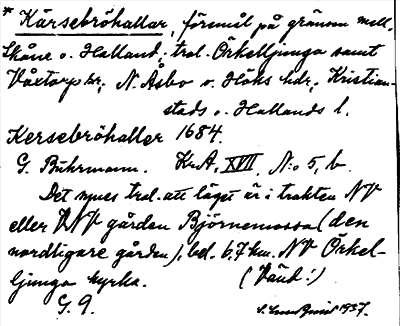 * Kärsebröhallar, förmål på gränsen mell.
Skåne o. Halland; trol. Örkelljunga samt
Våxtorp sr; N. Åsbo o. Höks hdr; Kristian-
stads o. Hallands l.
Kersebröhaller 1684.
G. Buhrmann. Kr.A. XVII N:o 5, b.
Det synes trol. att läget är i trakten NV
eller VNV gården Björnemossa (den
nordligare gården), bel. 6,7 km. NV Örkel-
ljunga kyrka. (Vänd!)
G. 9. 1937.